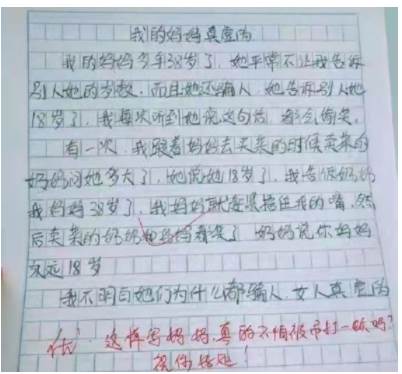 我的妈妈真虚伪
我的妈妈今年38岁了，她平常不让我告诉
别人她的岁数，而且她还骗人，她告诉别人她
18岁了，我每次听到她说这句话，都会偷笑。
有一次，我跟着妈妈去买菜的时候卖菜的
奶奶问她多大了，她说她18岁了，我告诉奶奶
我妈妈38岁了，我妈妈赶紧捂住我的嘴，然
后卖菜的奶奶和妈妈都笑了 奶奶说你妈妈
永远18岁
我不明白她们为什么都骗人，女人真虚伪
优 这样写妈妈，真的不怕被吊打一顿吗？
祝你好运！